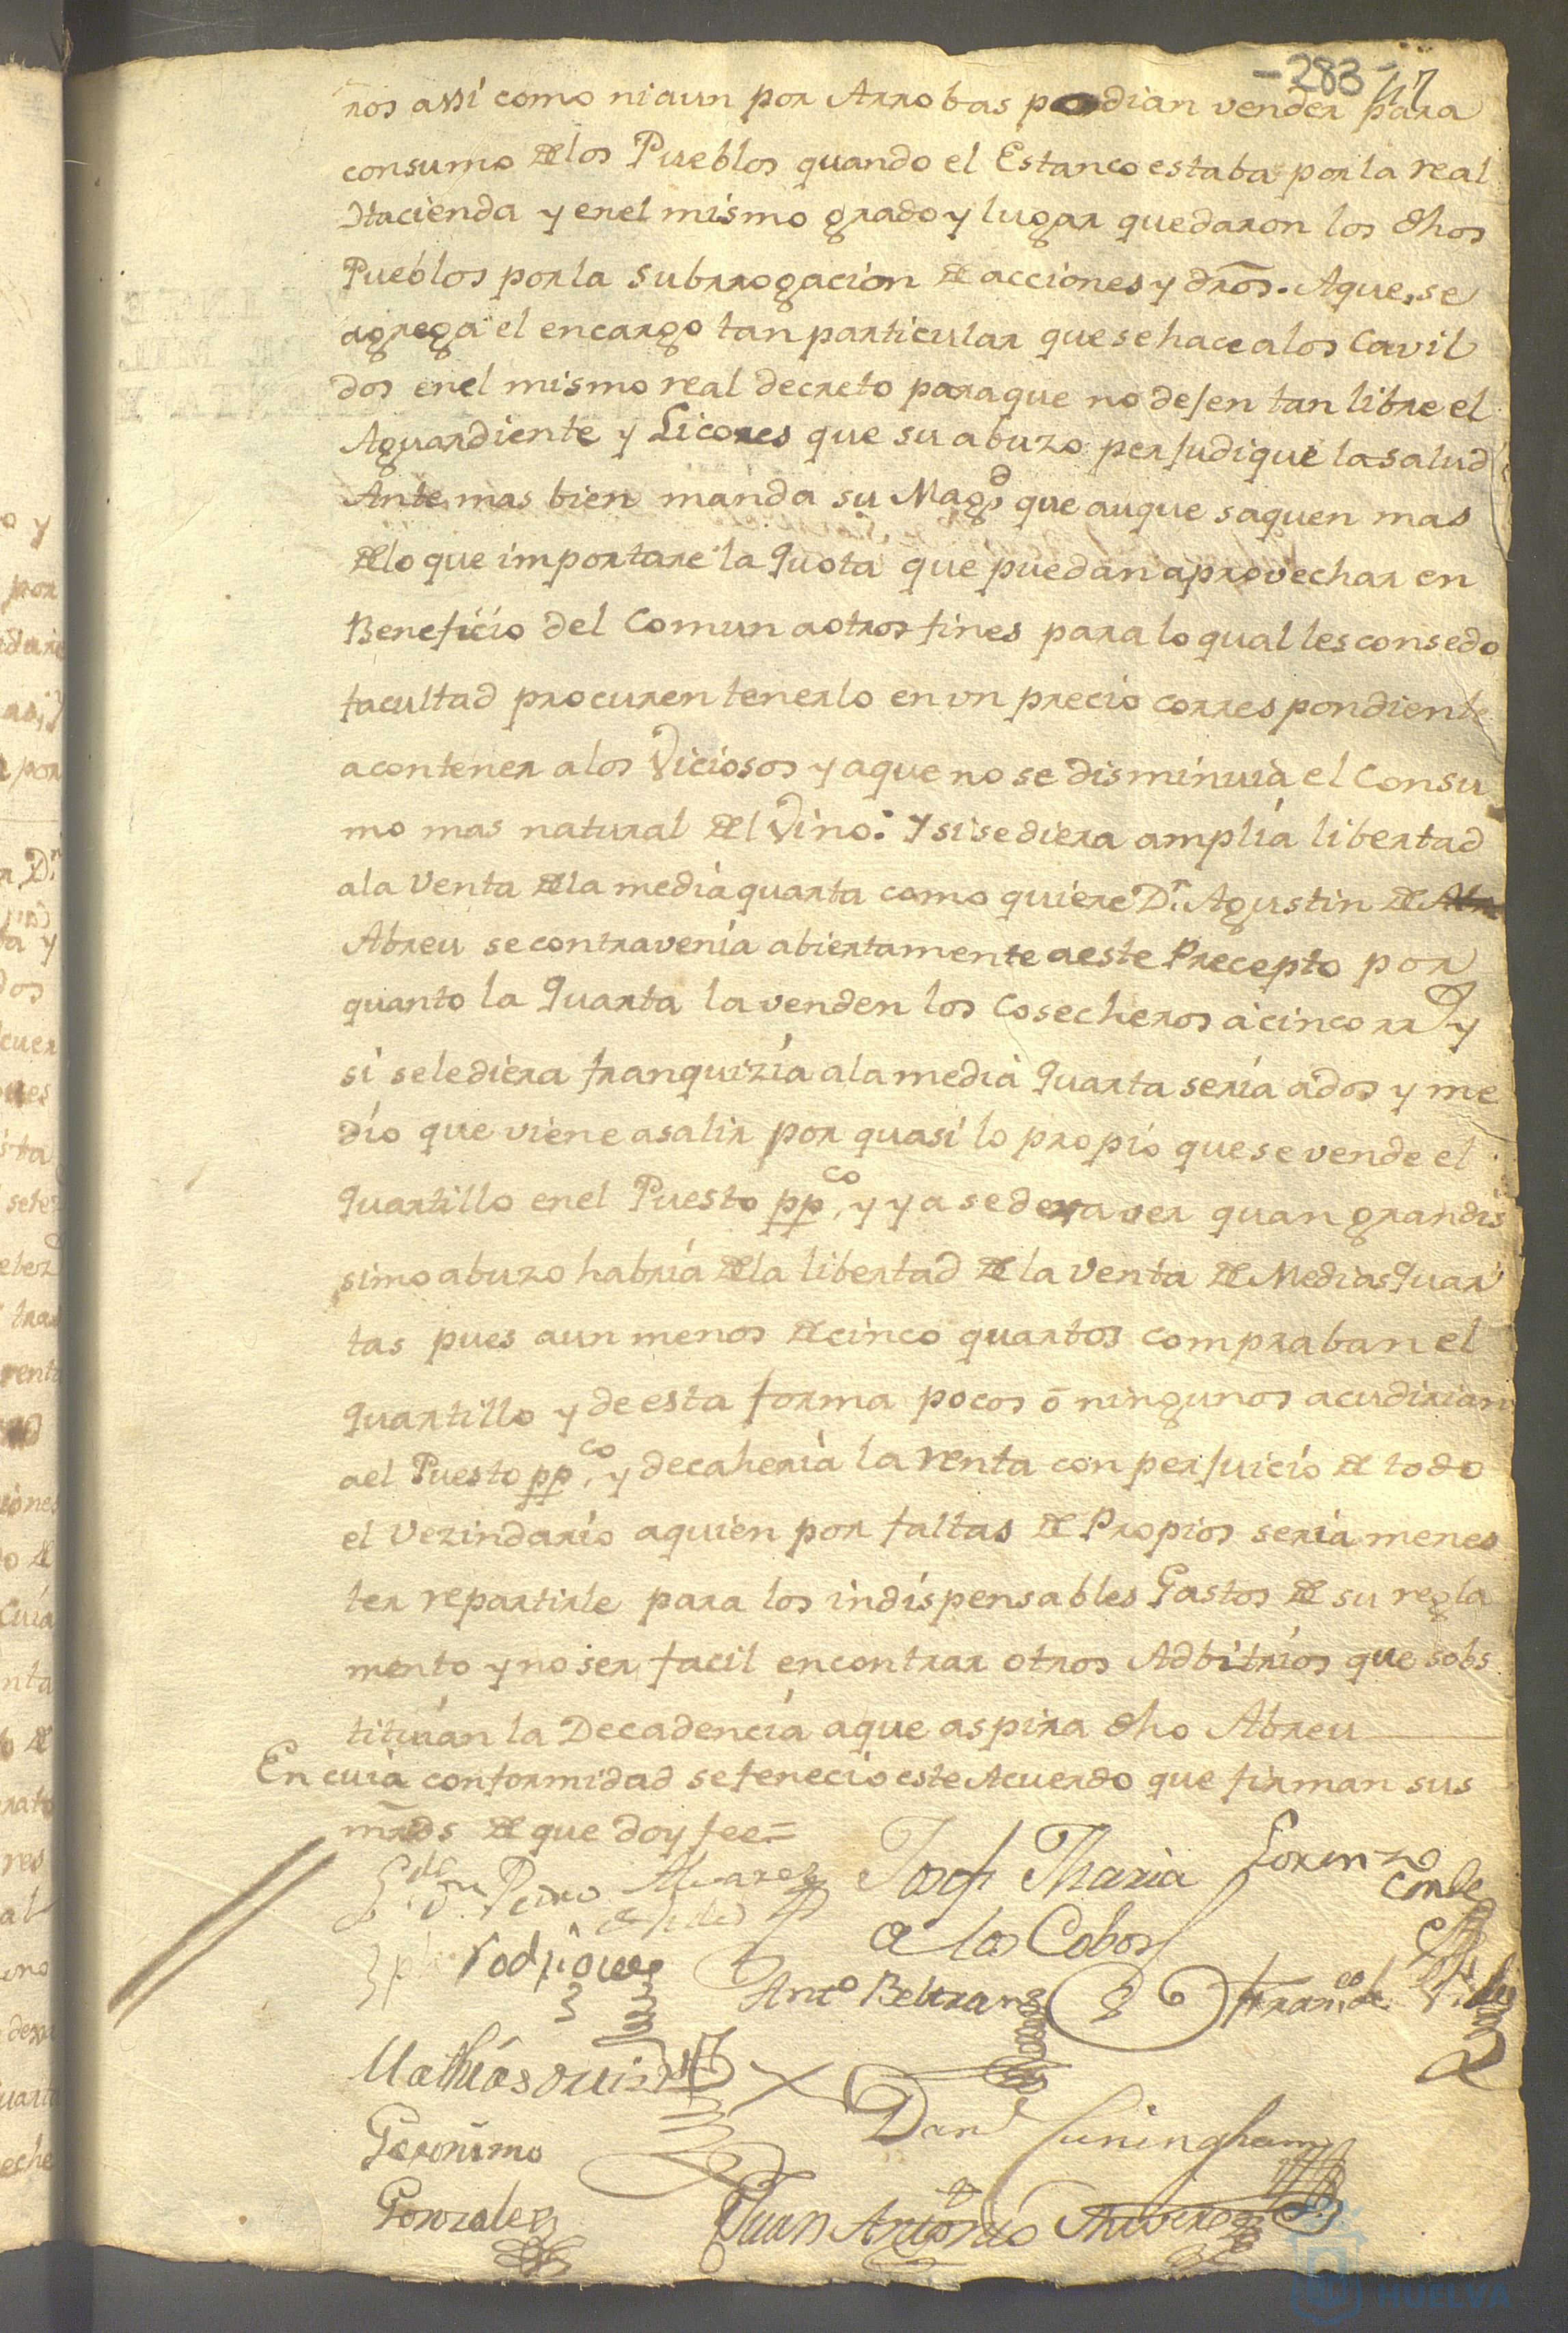 -283-
47
ros assi como ni aun por Arrobas podian vender para
consumo de los Pueblos quando el Estanco estaba por la real
Hacienda y en el mismo grado y lugar quedaron los dhos
Pueblos por la subrrogacion de acciones y dros. Aque, se
agrega el encargo tan particular que se hace a los Cavil
dos en el mismo real decreto para que no dejen tan libre el
Aguardiente y Licores que su abuzo perjudique la salud
Ante mas bien manda su Magd que auque saquen mas
de lo que importare la quota que puedan aprovechar en
Beneficio del Comun a otros fines para lo qual les consedo
facultad procuren tenerlo en un precio correspondiente
a contener a los Viciosos y a que no se disminuia el Consu
mo mas natural del Vino. Y si se diera amplia libertad
a la Venta de la media quarta como quiere Dn. Agustin de Abre
Abreu se contravenia abiertamente a este Precepto por
quanto la quarta la venden los Cosecheros a cinco rrs y
si se le diera franquizia a la media quarta seria a dos y me
dio que viene a salir por quasi lo propio que se vende el
quartillo en el Puesto ppco, y ya se dexa ver quan grandis
simo abuzo habria de la libertad de la Venta de Medias quar
tas pues aun menos de cinco quartos compraban el
quartillo y de esta forma pocos o ningunos acudirian
a el Puesto ppco, y decaheria la renta con perjuicio de todo
el Vezindario a quien por faltas de Propios seria menes
ter repartirle para los indispensables Gastos de su regla
mento y no ser facil encontrar otros Adbitrios que sobs
tituian la Decadencia a que aspira dho Abreu
En cuia conformidad se fenecio este Acuerdo que firman sus
mrds de que doy fee=
Pedro Alvarez
Josef Maria
Lorenzo
Conde
rodrigues
de los Cobos
Anto Beltran
Franco de
Mathias Ruiz
Danl Cuningham
Geronimo
Gonzales
Juan Antonio
HUELVA